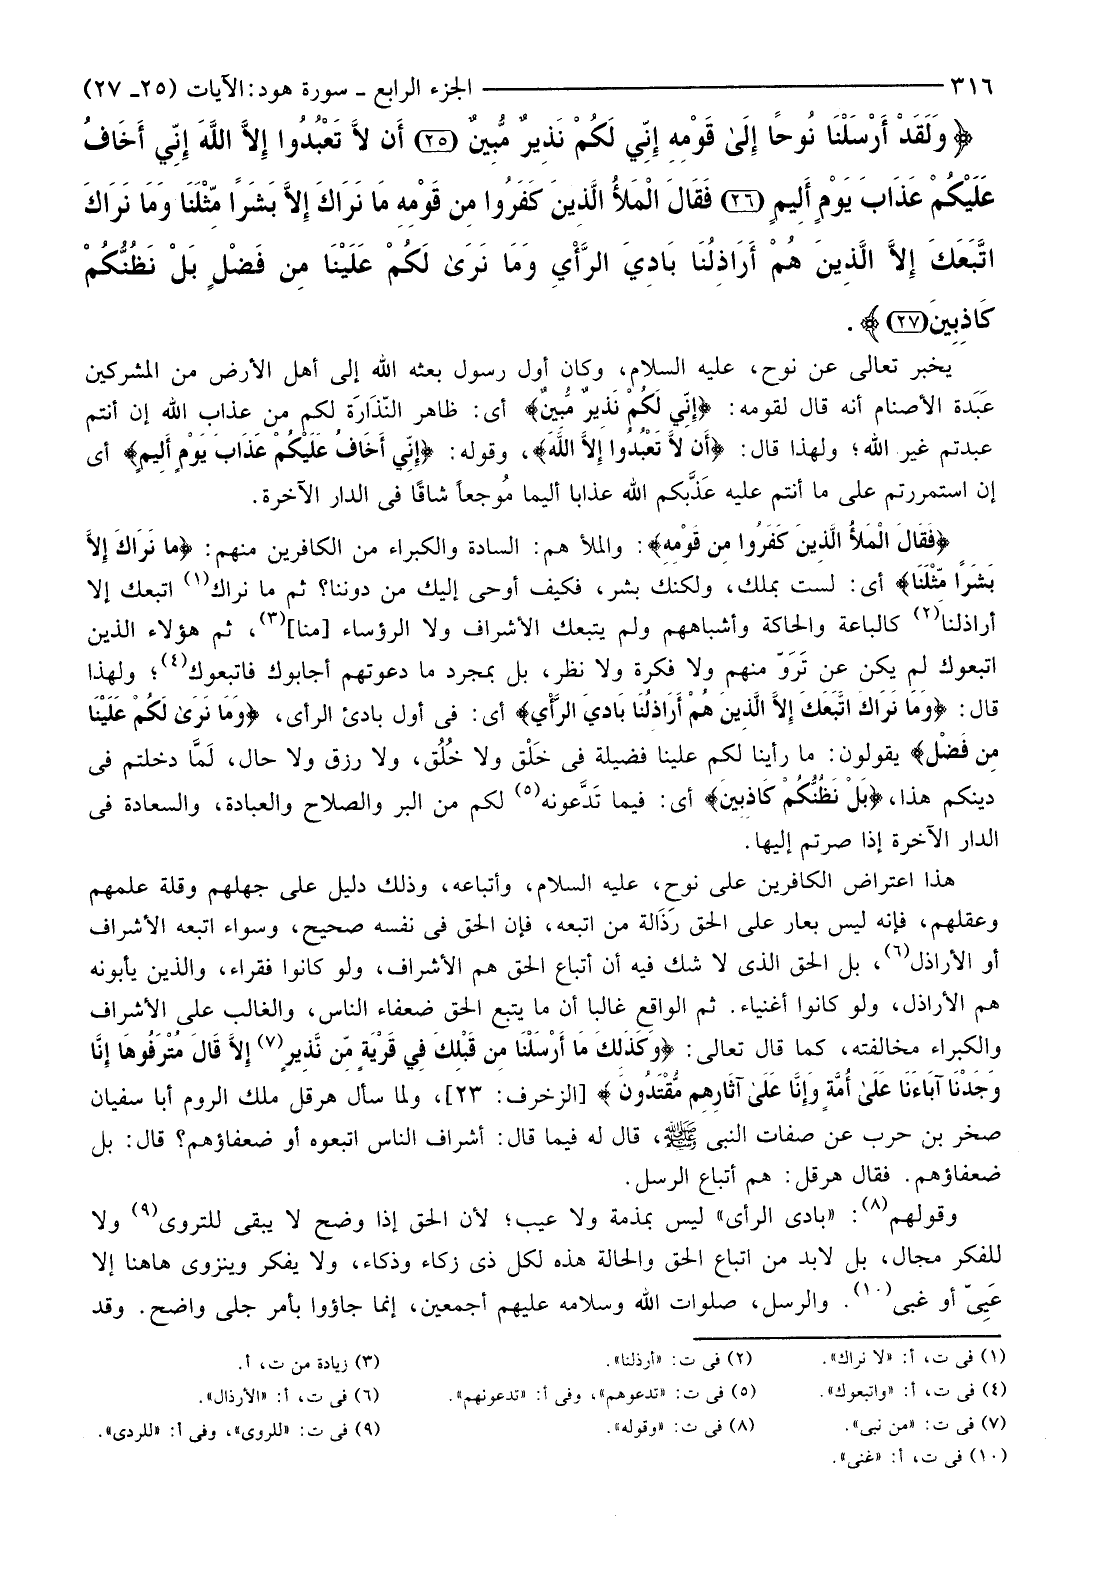 ٣١٦ ــــــــ الجزء الرابع ـ سورة هود: الآيات (٢٥ـ ٢٧)
﴿ وَلَقَدْ أَرْسَلْنَا نُوحًا إِلَىٰ قَوْمِهِ إِنِّي لَكُمْ نَذِيرٌ مُّبِينٌ (٢٥) أَن لاَّ تَعْبُدُوا إِلاَّ اللَّهَ إِنِّي أَخَافُ
عَلَيْكُمْ عَذَابَ يَوْمٍ أَلِيمٍ (٢٦) فَقَالَ الْمَلأُ الَّذِينَ كَفَرُوا مِن قَوْمِهِ مَا نَرَاكَ إِلاَّ بَشَرًا مِّثْلَنَا وَمَا نَرَاكَ
اتَّبَعَكَ إِلاَّ الَّذِينَ هُمْ أَرَاذِلُنَا بَادِيَ الرَّأْيِ وَمَا نَرَىٰ لَكُمْ عَلَيْنَا مِن فَضْلٍ بَلْ نَظُنُّكُمْ
كَاذِبِينَ (٢٧) ﴾ .
يخبر تعالى عن نوح، عليه السلام، وكان أول رسول بعثه الله إلى أهل الأرض من المشركين
عَبَدة الأصنام أنه قال لقومه: ﴿إِنِّي لَكُمْ نَذِيرٌ مُّبِينٌ﴾ أى: ظاهر النّذَارَة لكم من عذاب الله إن أنتم
عبدتم غير الله؛ ولهذا قال: ﴿أَن لاَّ تَعْبُدُوا إِلاَّ اللَّهَ﴾، وقوله: ﴿إِنِّي أَخَافُ عَلَيْكُمْ عَذَابَ يَوْمٍ أَلِيمٍ﴾ أى
إن استمررتم على ما أنتم عليه عَذَّبكم الله عذابا أليما مُوجعاً شاقًا فى الدار الآخرة.
﴿فَقَالَ الْمَلأُ الَّذِينَ كَفَرُوا مِن قَوْمِهِ﴾: والملأ هم: السادة والكبراء من الكافرين منهم: ﴿مَا نَرَاكَ إِلاَّ
بَشَرًا مِّثْلَنَا﴾ أى: لست بملك، ولكنك بشر، فكيف أوحى إليك من دوننا؟ ثم ما نراك(١) اتبعك إلا
أراذلنا(٢) كالباعة والحاكة وأشباههم ولم يتبعك الأشراف ولا الرؤساء [منا](٣)، ثم هؤلاء الذين
اتبعوك لم يكن عن تَرَوّ منهم ولا فكرة ولا نظر، بل بمجرد ما دعوتهم أجابوك فاتبعوك(٤)؛ ولهذا
قال: ﴿وَمَا نَرَاكَ اتَّبَعَكَ إِلاَّ الَّذِينَ هُمْ أَرَاذِلُنَا بَادِيَ الرَّأْيِ﴾ أى: فى أول بادئ الرأى، ﴿وَمَا نَرَىٰ لَكُمْ عَلَيْنَا
مِن فَضْلٍ﴾ يقولون: ما رأينا لكم علينا فضيلة فى خَلْق ولا خُلُق، ولا رزق ولا حال، لَمَّا دخلتم فى
دينكم هذا، ﴿بَلْ نَظُنُّكُمْ كَاذِبِينَ﴾ أى: فيما تَدَّعونه(٥) لكم من البر والصلاح والعبادة، والسعادة فى
الدار الآخرة إذا صرتم إليها.
هذا اعتراض الكافرين على نوح، عليه السلام، وأتباعه، وذلك دليل على جهلهم وقلة علمهم
وعقلهم، فإنه ليس بعار على الحق رَذَالة من اتبعه، فإن الحق فى نفسه صحيح، وسواء اتبعه الأشراف
أو الأراذل(٦)، بل الحق الذى لا شك فيه أن أتباع الحق هم الأشراف، ولو كانوا فقراء، والذين يأبونه
هم الأراذل، ولو كانوا أغنياء. ثم الواقع غالبا أن ما يتبع الحق ضعفاء الناس، والغالب على الأشراف
والكبراء مخالفته، كما قال تعالى: ﴿وَكَذَلِكَ مَا أَرْسَلْنَا مِن قَبْلِكَ فِي قَرْيَةٍ مِّن نَّذِيرٍ(٧) إِلاَّ قَالَ مُتْرَفُوهَا إِنَّا
وَجَدْنَا آبَاءَنَا عَلَىٰ أُمَّةٍ وَإِنَّا عَلَىٰ آثَارِهِم مُّقْتَدُونَ ﴾ [الزخرف: ٢٣]، ولما سأل هرقل ملك الروم أبا سفيان
صخر بن حرب عن صفات النبى ﷺ، قال له فيما قال: أشراف الناس اتبعوه أو ضعفاؤهم؟ قال: بل
ضعفاؤهم. فقال هرقل: هم أتباع الرسل.
وقولهم(٨): «بادى الرأى» ليس بمذمة ولا عيب؛ لأن الحق إذا وضح لا يبقى للتروى(٩) ولا
للفكر مجال، بل لابد من اتباع الحق والحالة هذه لكل ذى زكاء وذكاء، ولا يفكر وينزوى هاهنا إلا
عَيِىّ أو غبى(١٠). والرسل، صلوات الله وسلامه عليهم أجمعين، إنما جاؤوا بأمر جلى واضح. وقد
(١) فى ت، أ: «لا نراك». (٢) فى ت: «أرذلنا». (٣) زيادة من ت، أ.
(٤) فى ت، أ: «واتبعوك». (٥) فى ت: «تدعوهم»، وفى أ: «تدعونهم». (٦) فى ت، أ: «الأرذال».
(٧) فى ت: «من نبى». (٨) فى ث: «وقوله». (٩) فى ت: «للروى»، وفى أ: «للردى».
(١٠) فى ت، أ: «غنى».